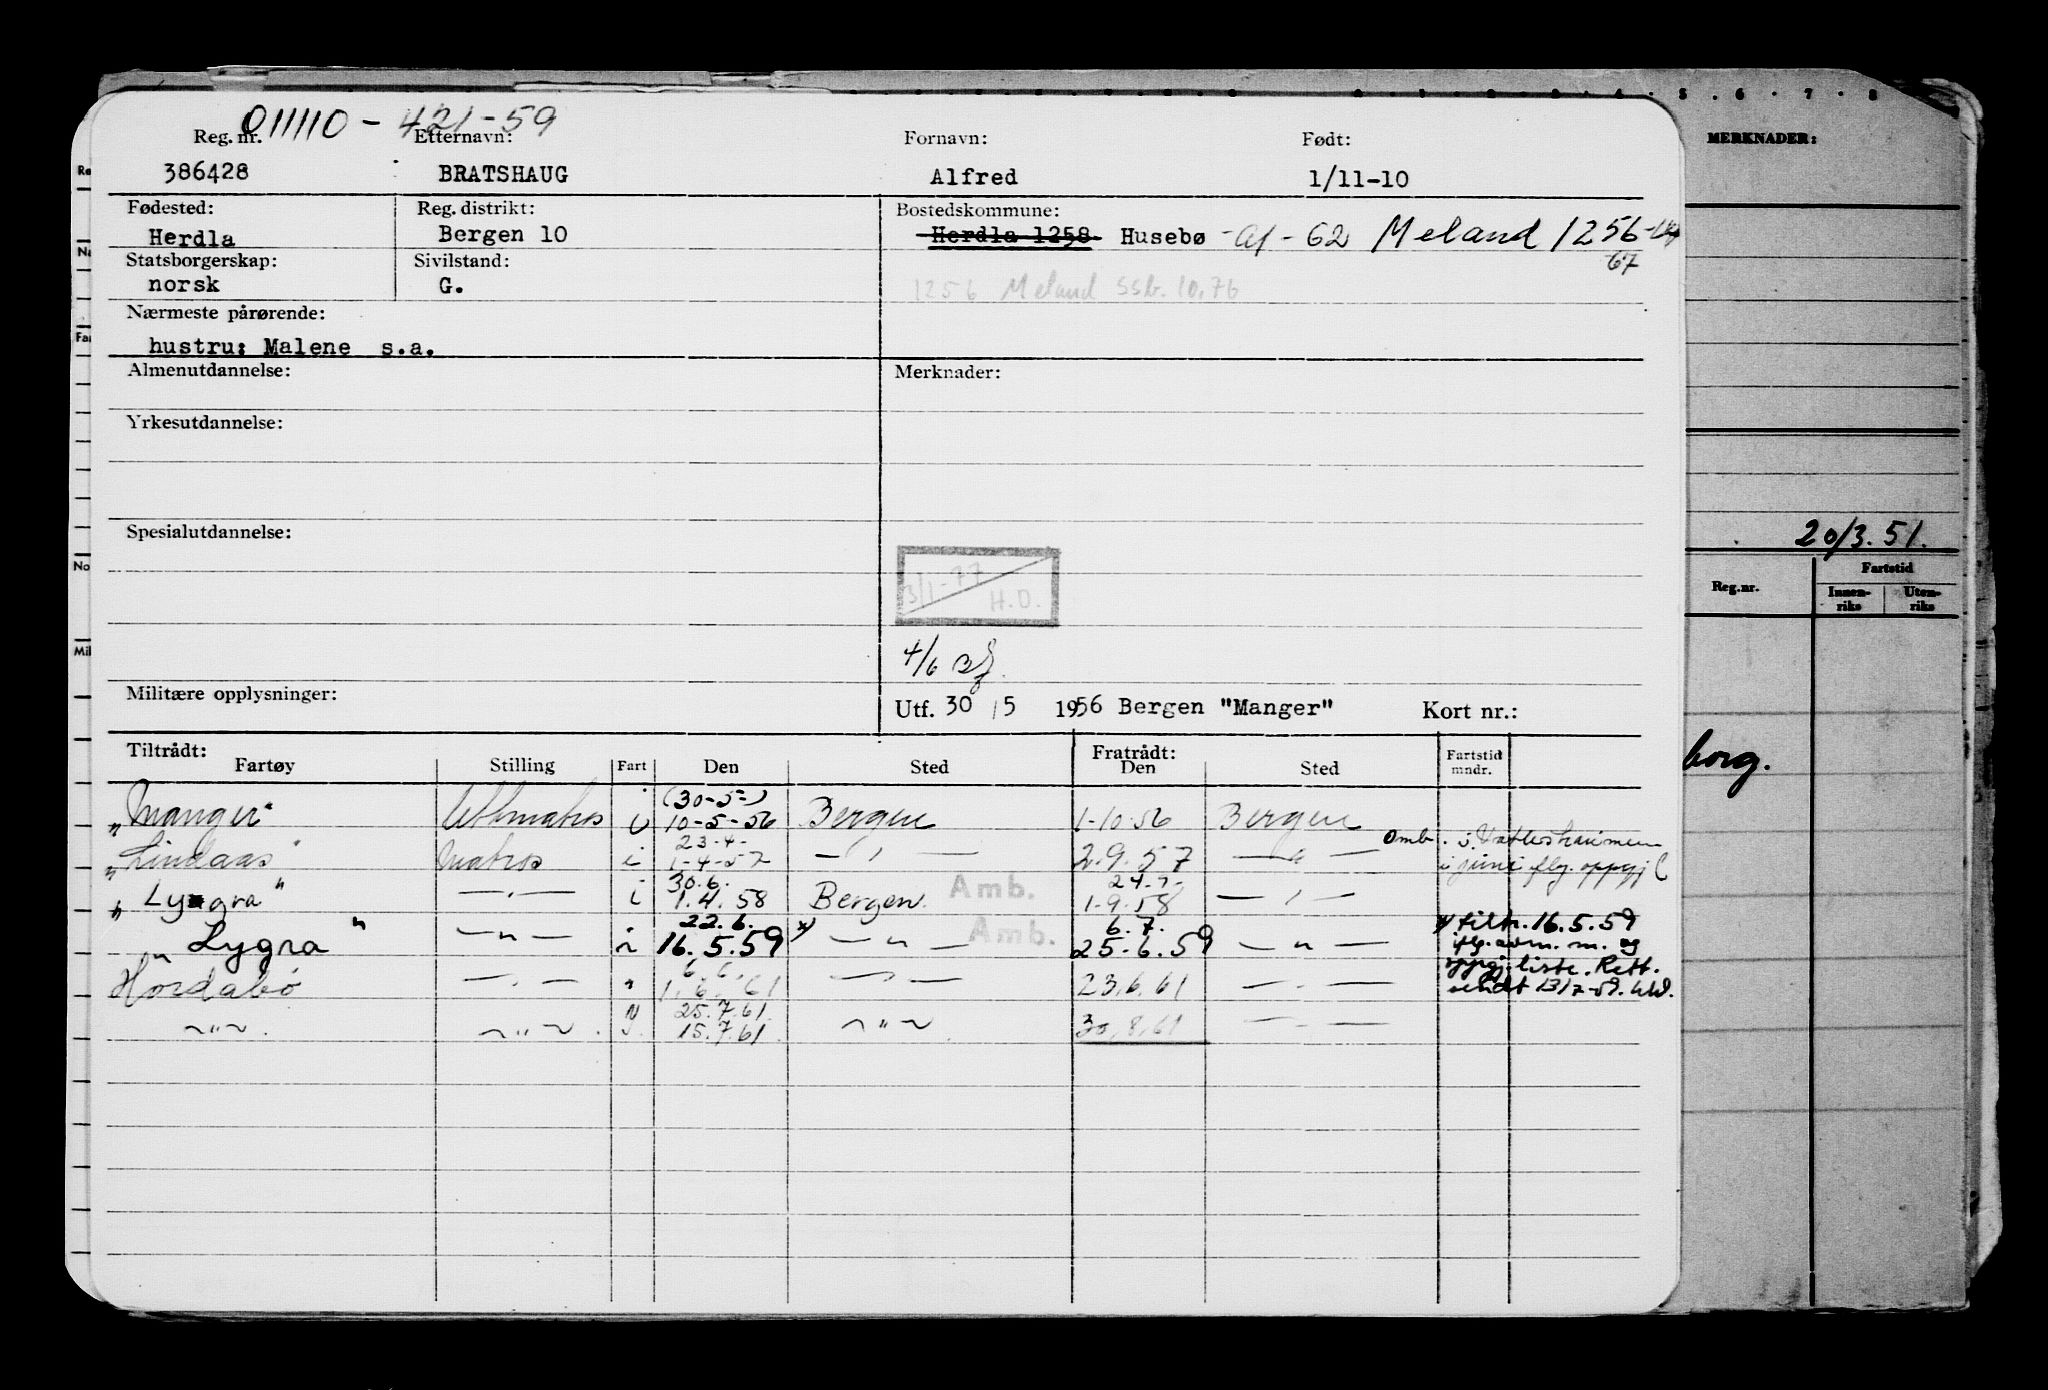 011110-421-59
Reg. nr. Etternavn: Fornavn: Født:
386428 BRATSHAUG Alfred 1/11-10
MERKNADER:
Fødested: Reg. distrikt: Bostedskommune:
Herdla Bergen 10 Herdla 1258 Husebø - af - 62 Meland 1256
67
Statsborgerskap: Sivilstand:
norsk G.
1256 Meland SSb. 10.76
Nærmeste pårørende:
hustru: Malene s.a.
Almenutdannelse: Merknader:
Yrkesutdannelse:
Spesialutdannelse:
20/3.51.
3/1-77
H.O.
Reg.nr. Fartstid
Innen-riks Uten-riks
4/6
Militære opplysninger: Utf. 30/5 1956 Bergen "Manger" Kort nr.:
Tiltrådt: Fratrådt:
Fartøy Stilling Fart Den Sted Den Sted Fartstid mndr.
borg.
(30-5-)
"Manger" i 10-5-56 Bergen 1-10-56 Bergen
23-4-
"Lindaas" Matros i 1-4-57 — " — 2.9.57 — " — Omb. i
i juni flg. oppgj
30.6. 24-7-
"Lygra" — " — i 1.4.58 Bergen Amb. 1-9-58 — " —
22.6. 6.7.
"Lygra" — " — 16.5.59 x) — " — Amb. 25.6.59 — " — x) tiltr. 16.5.59
iflg. avm. m. og
oppgj.liste. Rett.
sendt 13/7-59.
6.6.
Hordabø — " — 1.6.61 — " — 23.6.61 — " —
25.7.61
— " — — " — 15.7.61 — " — 30.8.61 — " —